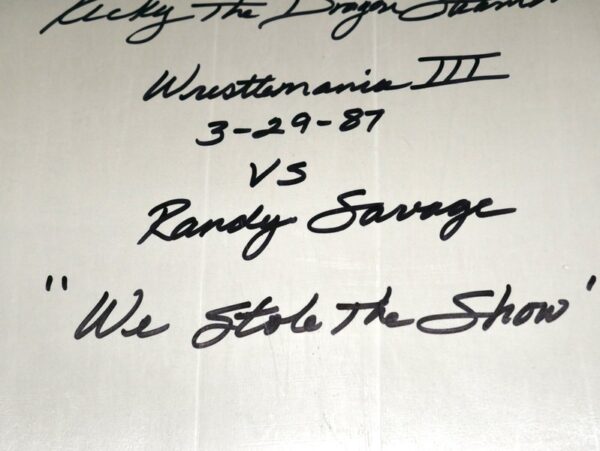 Ricky The Dragon Steamboat
Wrestlemania III
3-29-87
VS
Randy Savage
"We Stole The Show"